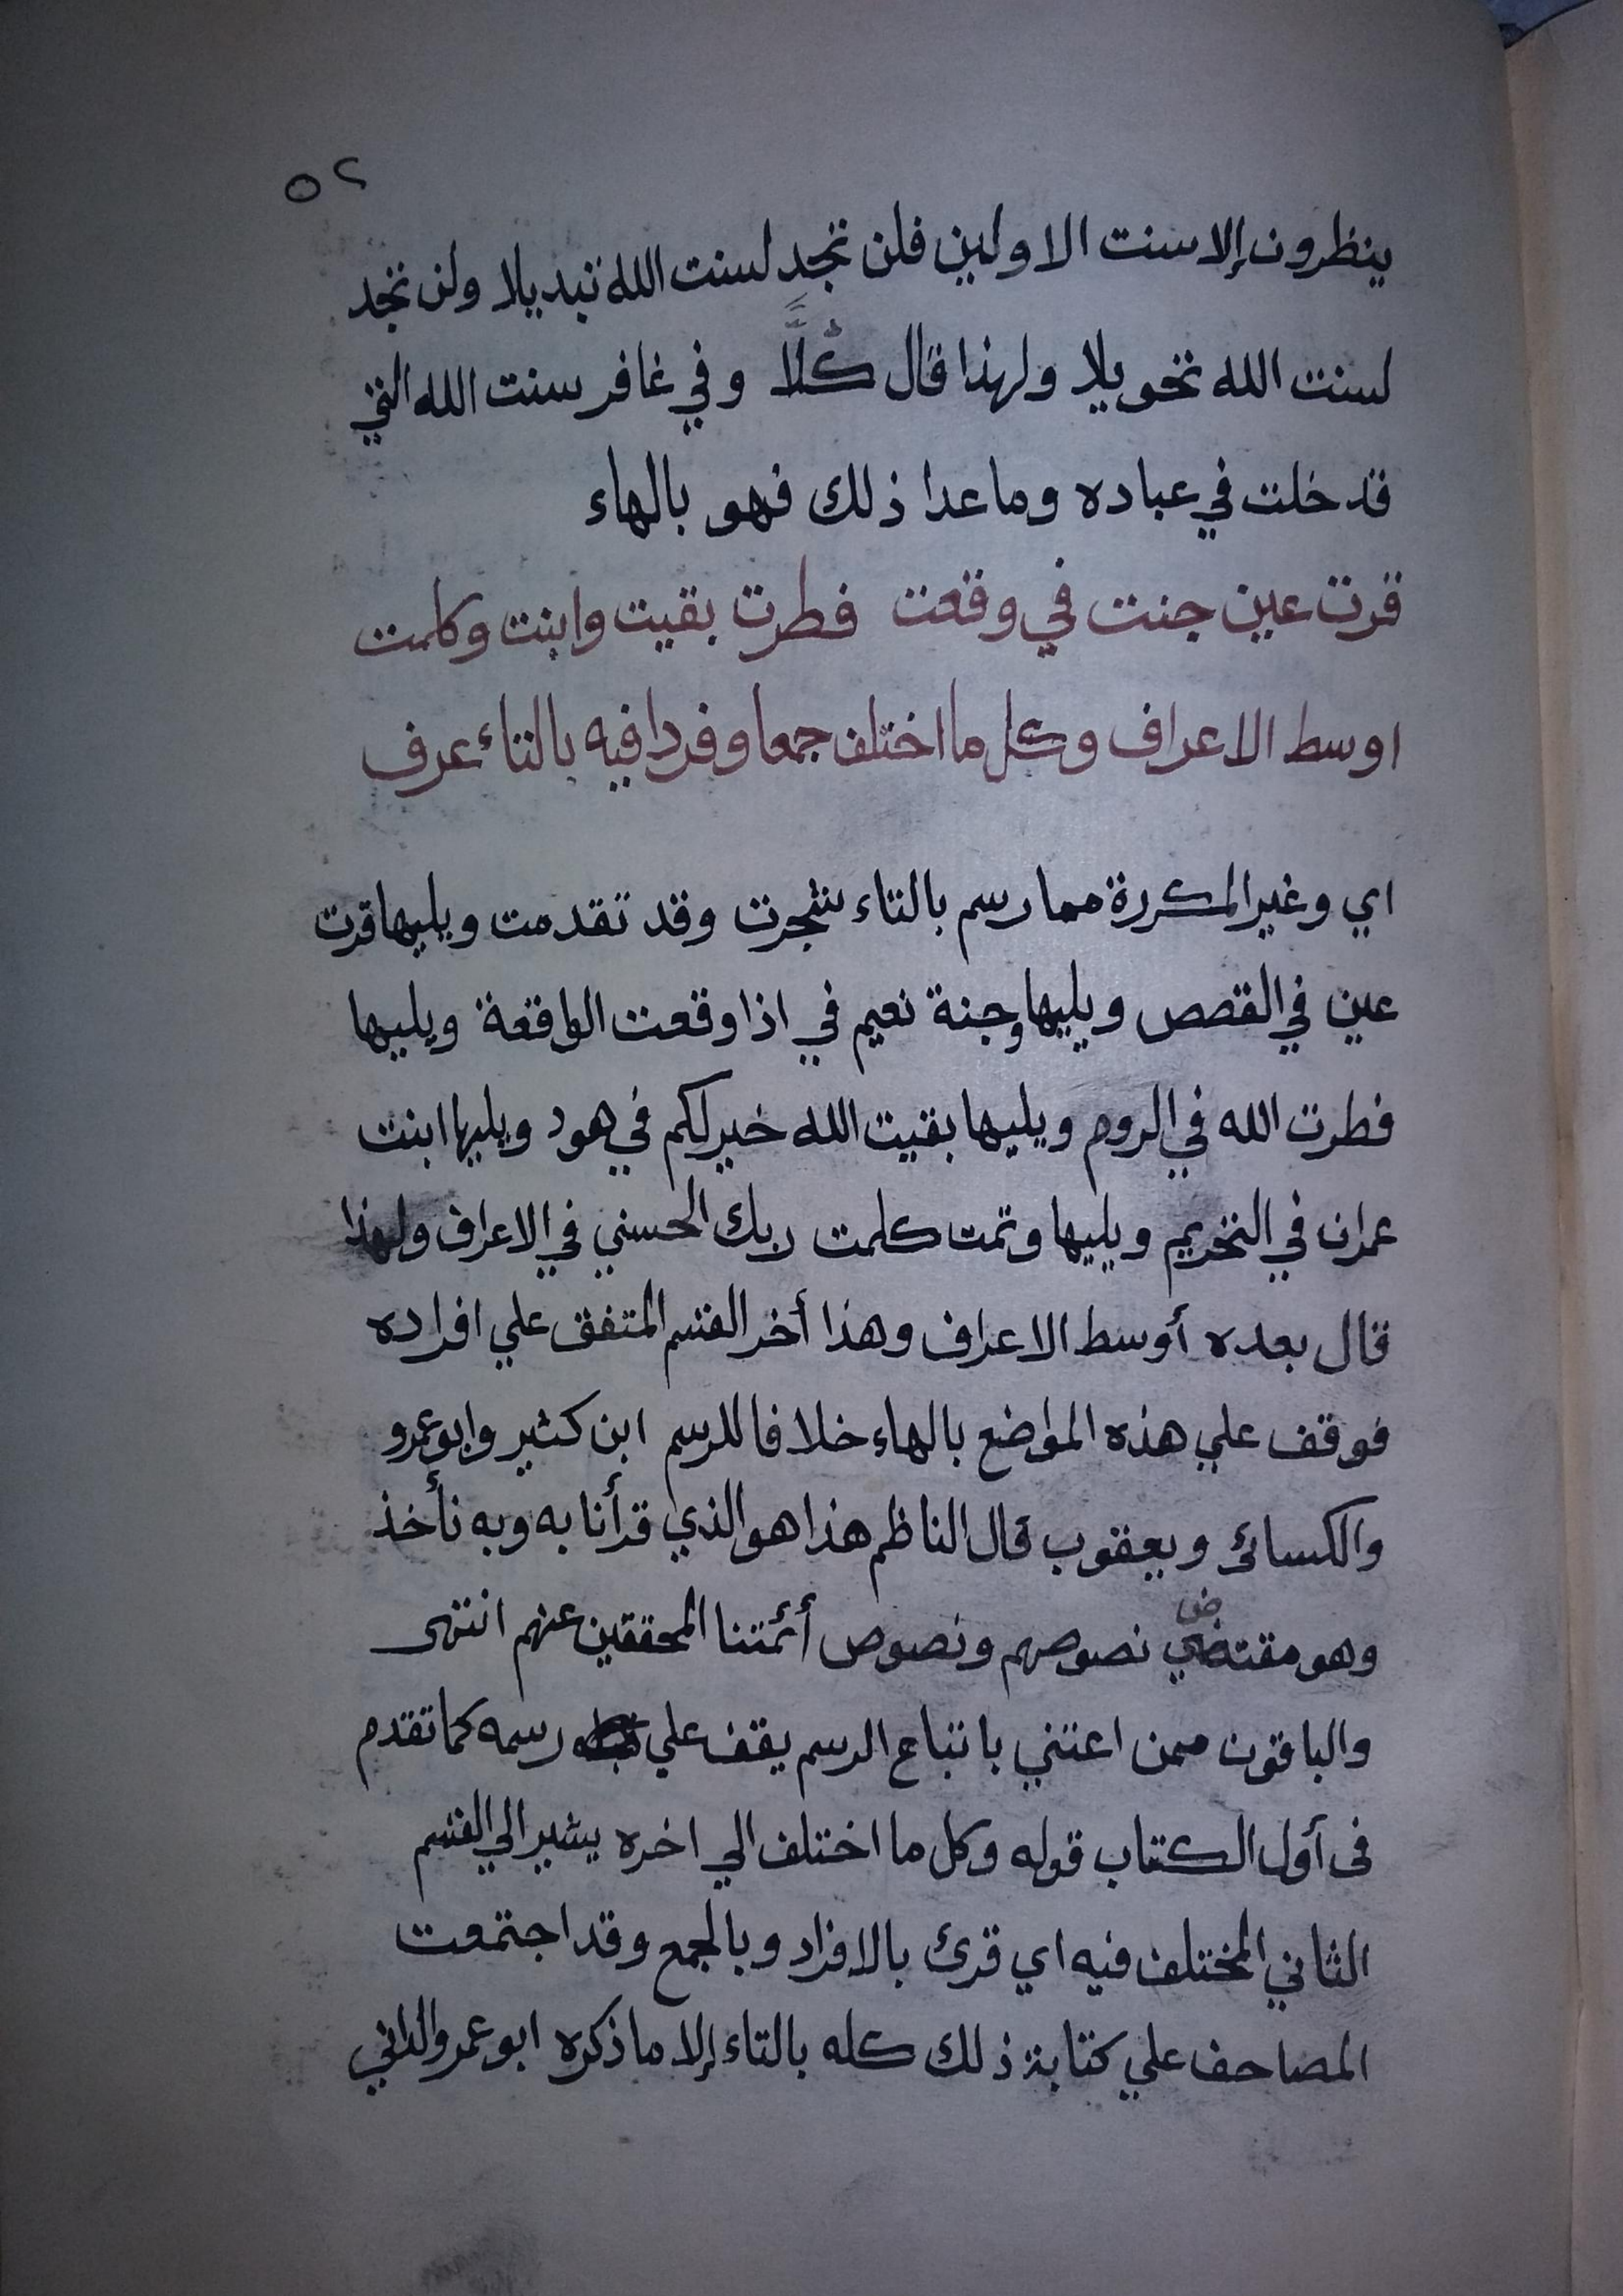 ٥٢
ينظرون إلا سنت الاولين فلن تجد لسنت الله تبديلا ولن تجد
لسنت الله تحويلا ولهذا قال كُلًّا وفي غافر سنت الله التي
قد خلت في عباده وما عدا ذلك فهو بالهاء
قرت عين جنت في وقعت فطرت بقيت وابنت وكلمت
اوسط الاعراف وكل ما اختلف جمعا وفردا فيه بالتاء عرف
اي وغير المكررة مما رسم بالتاء شجرت وقد تقدمت ويليها قرت
عين في القصص ويليها وجنة نعيم في اذا وقعت الواقعة ويليها
فطرت الله في الروم ويليها بقيت الله خير لكم في هود ويليها ابنت
عمران في التحريم ويليها وتمت كلمت ربك الحسني في الاعراف ولهذا
قال بعده أوسط الاعراف وهذا أخر القسم المتفق علي افراده
فوقف علي هذه المواضع بالهاء خلافا للرسم ابن كثير وابو عمرو
والكسائ ويعقوب قال الناظم هذا هو الذي قرأنا به وبه نأخذ
وهو مقتضي نصوصهم ونصوص أئمتنا المحققين عنهم انتهى
والباقون ممن اعتني باتباع الرسم يقف علي رسمه كما تقدم
فى أول الكتاب قوله وكل ما اختلف الي اخره يشير الي القسم
الثاني المختلف فيه اي قرئ بالافراد وبالجمع وقد اجتمعت
المصاحف علي كتابة ذلك كله بالتاء إلا ما ذكره ابو عمرو الداني